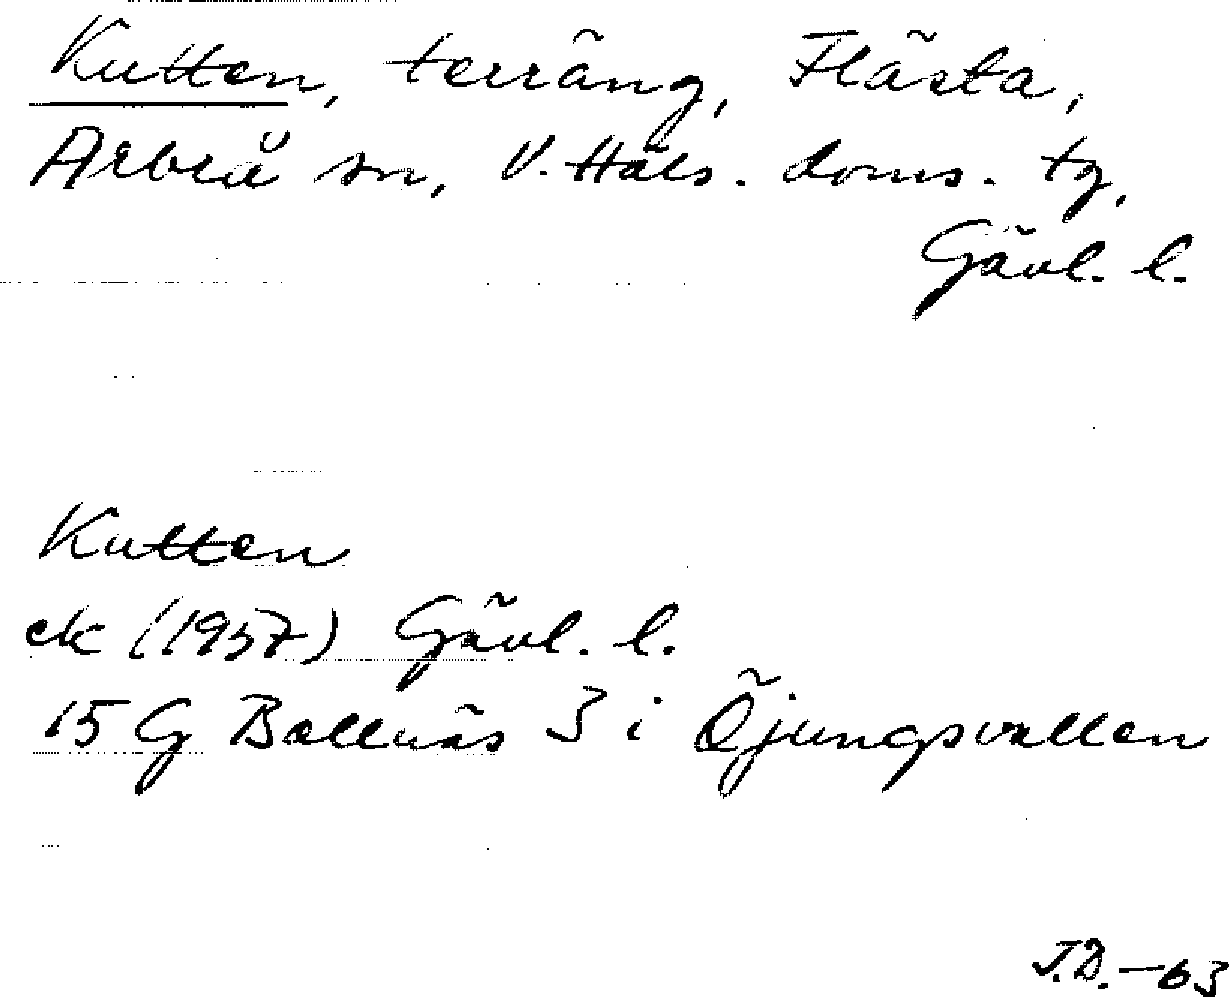 Kutten, terräng, Flästa,
Arbrå sn, V. Häls. doms. tg,
Gävl. l.
Kutten
ek (1957) Gävl. l.
15 G Bollnäs 3 i Öjungsvallen
J.D.–63